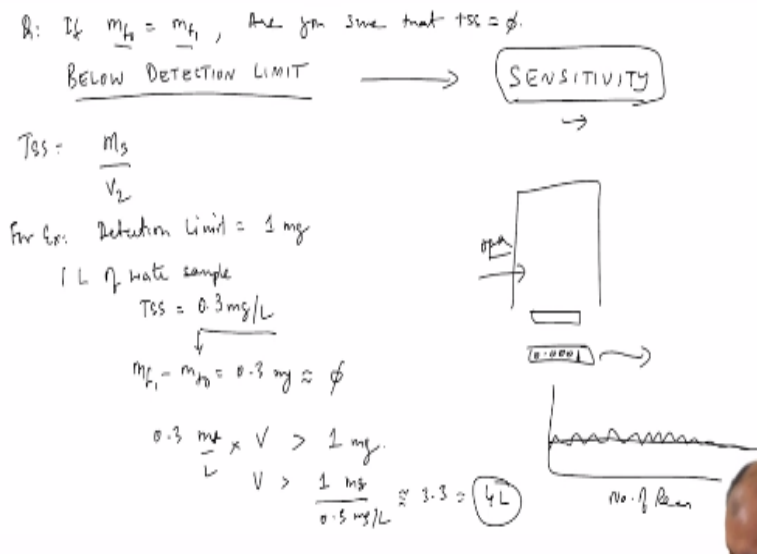 Q: If mf0 = mf1, Are you sure that TSS = ϕ.
BELOW DETECTION LIMIT → SENSITIVITY
→
TSS = ms / V2
For Ex: Detection Limit = 1 mg
1 L of wate sample
TSS = 0.3 mg/L
mf1 - mf0 = 0.3 mg ≈ ϕ
0.3 mg/L × V > 1 mg.
V > 1 mg / 0.3 mg/L ≈ 3.3 = 4L
open
0.0001
No. of